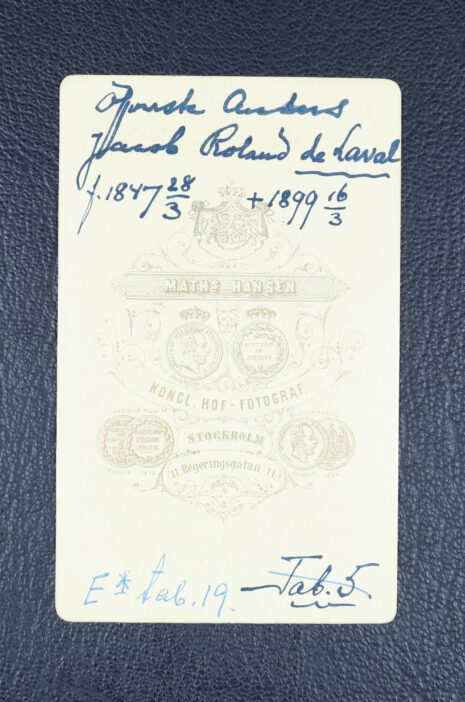 Öfverste Anders
Jacob Roland de Laval
f. 1847 28/3 + 1899 16/3
MATHS HANSEN
LITTERIS ET ARTIBUS
KONGL. HOF-FOTOGRAF.
STOCKHOLM
11 Regeringsgatan 11
E* tab. 19. Tab. 5